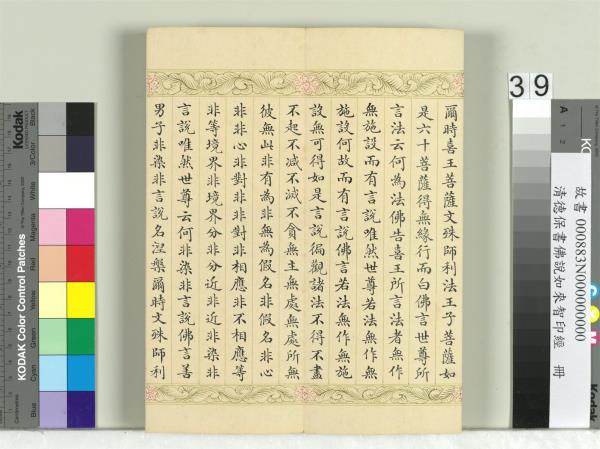 爾時喜王菩薩文殊師利法王子菩薩如
是六十菩薩得無緣行而白佛言世尊所
言法云何為法佛告喜王所言法者無作
無施設而有言說唯然世尊若法無作無
施設何故而有言說佛言若法無作無施
設無可得如是言說徧觀諸法不得不盡
不起不滅不減不貪無主無處無處所無
彼無此非有為非無為假名非假名非心
非非心非對非非對非相應非不相應等
非等境界非境界分非分近非近染非
言說唯然世尊云何非染非言說佛言善
男子非染非言說名涅槃爾時文殊師利
39
故書 000883N000000000
清德保書佛說如來智印經 冊
Kodak
KODAK Color Control Patches
Black
3/Color
White
Magenta
Red
Yellow
Green
Cyan
Blue
Centimetres
A
1
2